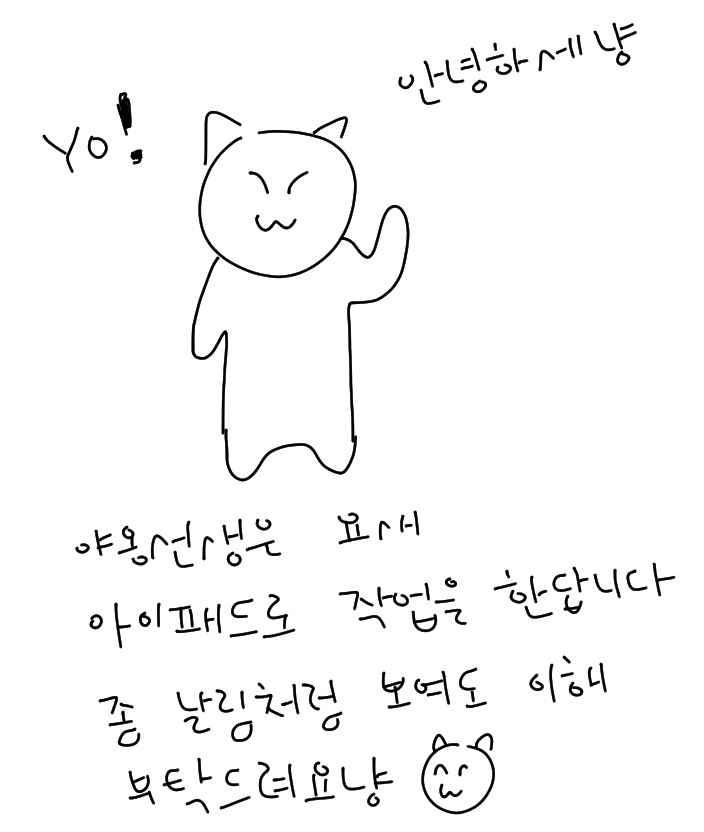 Yo!
안녕하세냥
야옹선생은 요새
아이패드로 작업을 한답니다
좀 날림처럼 보여도 이해
부탁드려요냥